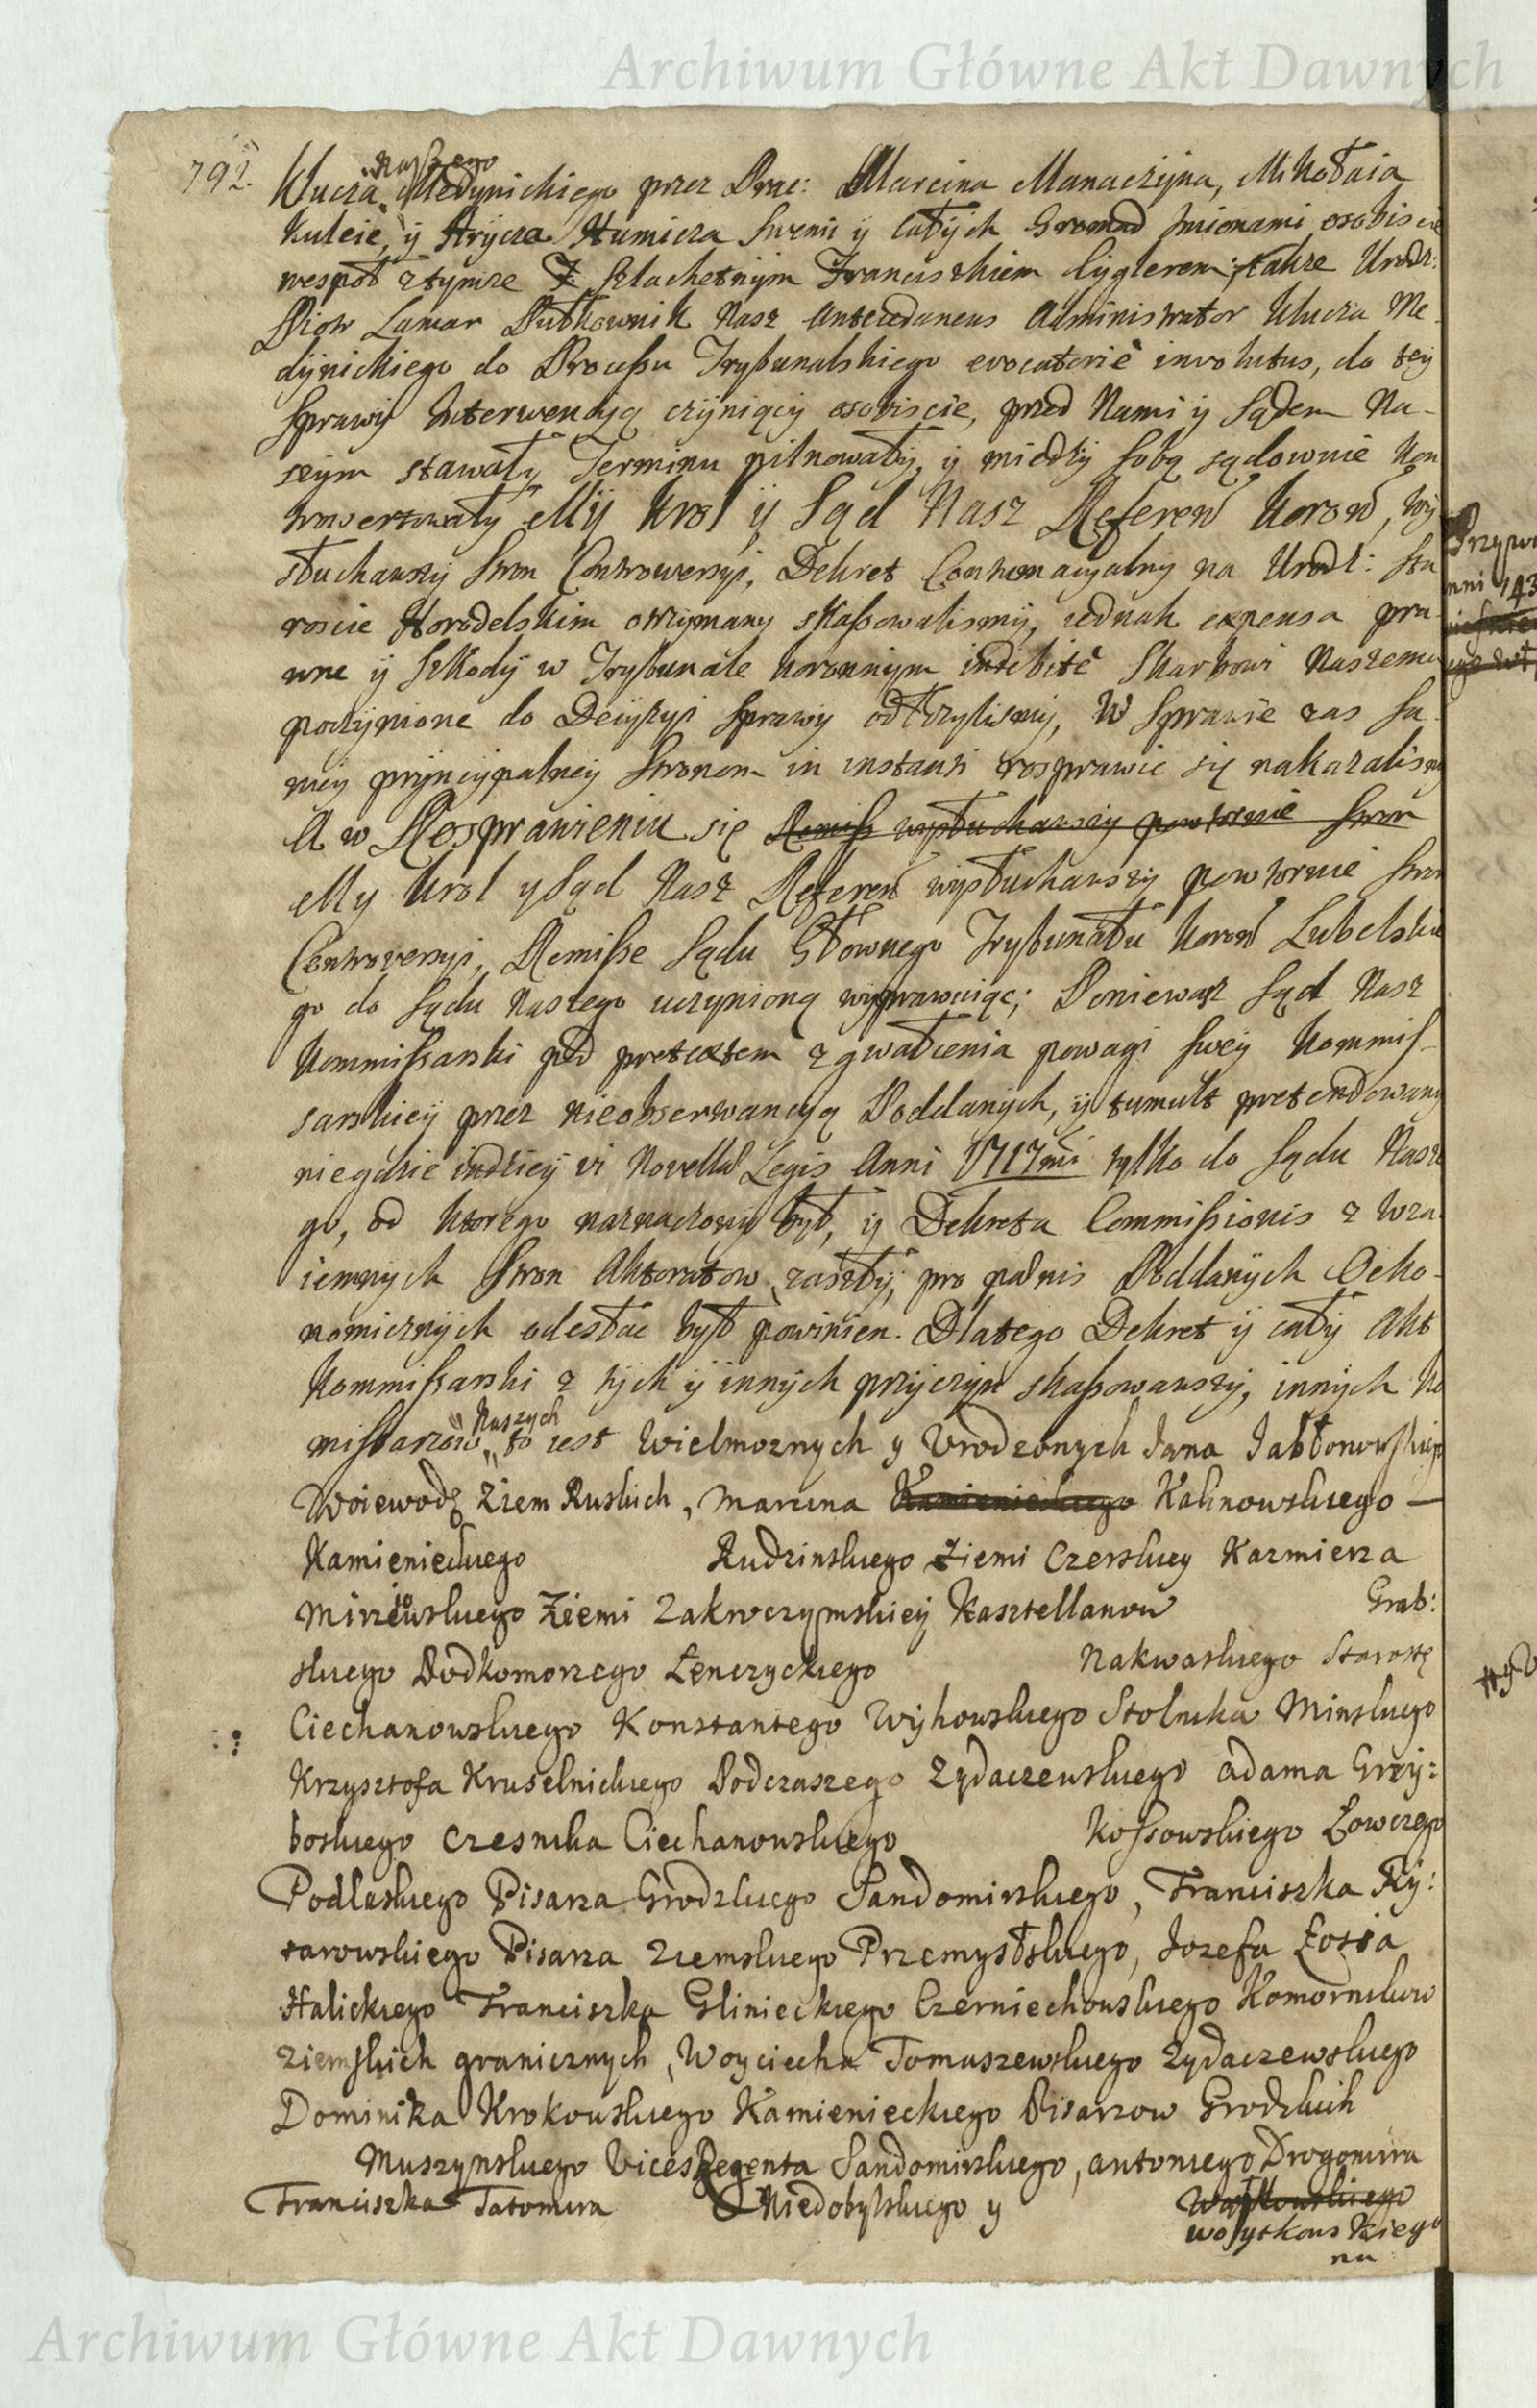 Archiwum Główne Akt Dawnych
792.
Naszego
Klucza Medynickiego przez Prac: Marcina Manaczyna, Mikołaia
Kuleie, y Hrycza Humicza swemi y całych Gromad Imionami osobiscie
wespoł z tymze Szlachetnym Franciszkiem Cyglerem; także Urodz:
Piotr Lamar Pułkownik Nasz Antecedaneus Administrator Klucza Me-
dynickiego do Processu Trybunalskiego evocatorie involutus, do tey
Sprawy Interwencyą czyniący osobiscie, przed Nami y Sądem Na-
szym stawały Terminu pilnowały, y miedzy sobą sądownie Kon
trowertowały My Krol y Sąd Nasz Referen Koron, wy
słuchawszy stron Controwersyi, Dekret Contumacyalny na Urodz: Sta
roscie Horodelskim otrzymany skassowalismy, iednak expensa pra-
wne y szkody w Trybunale Koronnym indebite Skarbowi Naszemu
poczynione do Decyzyi Sprawy odłozylismy, W Sprawie zas sa-
mey pryncypalney Stronom in instanti rosprawic się nakazalismy
A w Rosprawieniu się Remiss wysłuchawszy powtornie stron
My Krol y Sąd Nasz Referen wysłuchawszy powtornie stron
Controversyi, Remisse Sądu Głownego Trybunału Koron Lubelskie
go do Sądu Naszego uczynioną wyprawuiąc; Poniewasz Sąd Nasz
Kommissarski pod pretextem zgwałcenia powagi swey Kommis-
sarskiey przez nieobserwancyą Poddanych, y tumult pretendowany
niegdzie indziey vi Novella Legis Anni 1717mi tylko do Sądu Nasze
go, od ktorego naznaczony był, y Dekreta Commissionis z wza-
iemnych Stron Aktoratow zaszły, pro paenis Poddanych Oeko-
nomicznych odesłac był powinien. Dlatego Dekret y cały Akt
Kommissarski z tych y innych przyczyn skassowawszy, innych Ko
Naszych
missarzow to iest Wielmoznych y Vrodzonych Jana Jabłonowskiego
Woiewodę Ziem Ruskich, Marcina Kamienieckiego Kalinowskiego —
Kamienieckiego Rudzinskiego Ziemi Czerskiey Kazmierza
Mirzewskiego Ziemi Zakroczymskiey Kasztellanow Grab:
skiego Podkomorzego Łenczyckiego Nakwaskiego Starostę
Ciechanowskiego Konstantego Wyhowskiego Stolnika Minskiego
Krzysztofa Kruselnickiego Podczaszego Zydaczewskiego Adama Grzy:
boskiego Czesnika Ciechanowskiego Kossowskiego Łowczego
Podlaskiego Pisarza Grodzkiego Sandomirskiego, Franciszka Ry:
tarowskiego Pisarza Ziemskiego Przemysłskiego, Jozefa Łosia
Halickiego Franciszka Glinieckiego Czerniechowskiego Komornikow
Ziemskich granicznych, Woyciecha Tomaszewskiego Zydaczewskiego
Dominika Krokowskiego Kamienieckiego Pisarzow Grodzkich
Muszynskiego Vices Regenta Sandomirskiego, Antoniego Drogomira
Franciszka Tatomira Niedobylskiego y
Woytkowskiego
na
Archiwum Główne Akt Dawnych